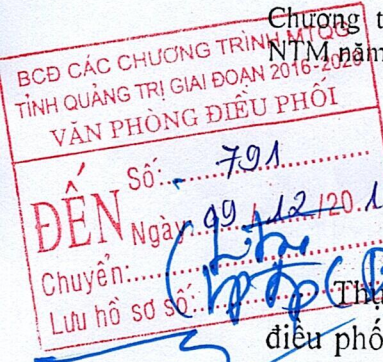 Chương t
NTM năm
BCĐ CÁC CHƯƠNG TRÌNH MTQG
TỈNH QUẢNG TRỊ GIAI ĐOẠN 2016-2020
VĂN PHÒNG ĐIỀU PHỐI
ĐẾN
Số: 791
Ngày: 09/12/20.1
Chuyển:
Lưu hồ sơ số:
Thự
điều phố